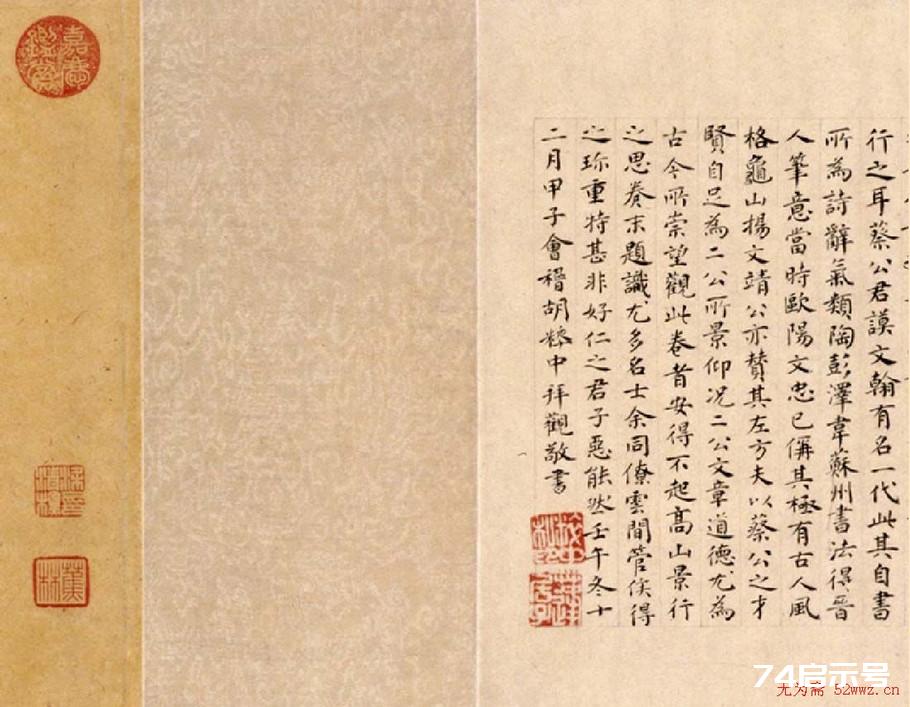 行之耳蔡公君謨文翰有名一代此其自書
所為詩辭氣類陶彭澤韋蘇州書法得晉
人筆意當時歐陽文忠已偁其極有古人風
格龜山楊文靖公亦贊其左方夫以蔡公之才
賢自足為二公所景仰况二公文章道德尤為
古今所崇望觀此卷者安得不起高山景行
之思卷末題識尤多名士余同僚雲間管侯得
之珎重特甚非好仁之君子惡能然壬午冬十
二月甲子會稽胡粹中拜觀敬書
嘉慶鑑賞
蕉林
74启示号
无为斋 52wwz.cn